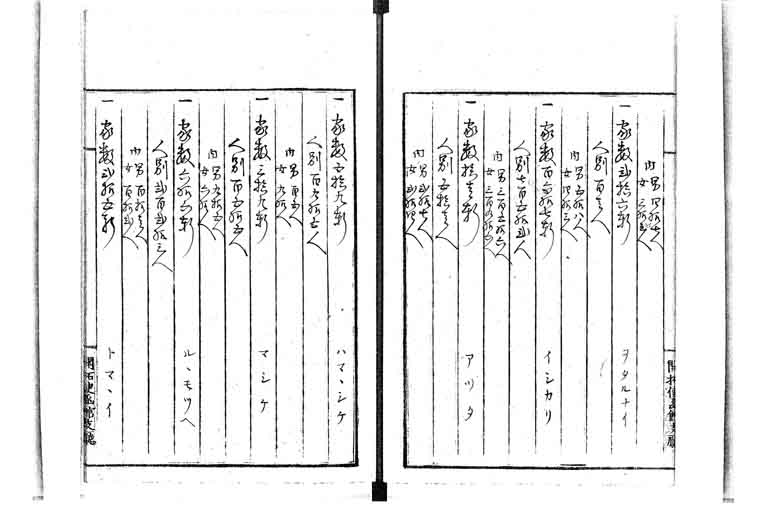 内 男 四拾七人
女 三拾弐人
一 家数弐拾六軒 ヲタルナイ
人別百壱人
内 男 五拾八人
女 四拾三人
一 家数百六拾七軒 イシカリ
人別七百五拾弐人
内 男 三百五拾六人
女 三百九拾六人
一 家数拾壱軒 アツタ
人別五拾壱人
内 男 弐拾七人
女 弐拾四人
開拓使函館支廳
一 家数五拾九軒 ハマヽシケ
人別百九拾七人
内 男 百
女 九拾
一 家数三拾九軒 マシケ
人別百五拾五人
内 男 九拾五人
女 六拾人
一 家数六拾六軒 ルヽモツヘ
人別弐百弐拾三人
内 男 百拾壱人
女 百拾弐人
一 家数弐拾五軒 トマヽイ
開拓使函館支廳